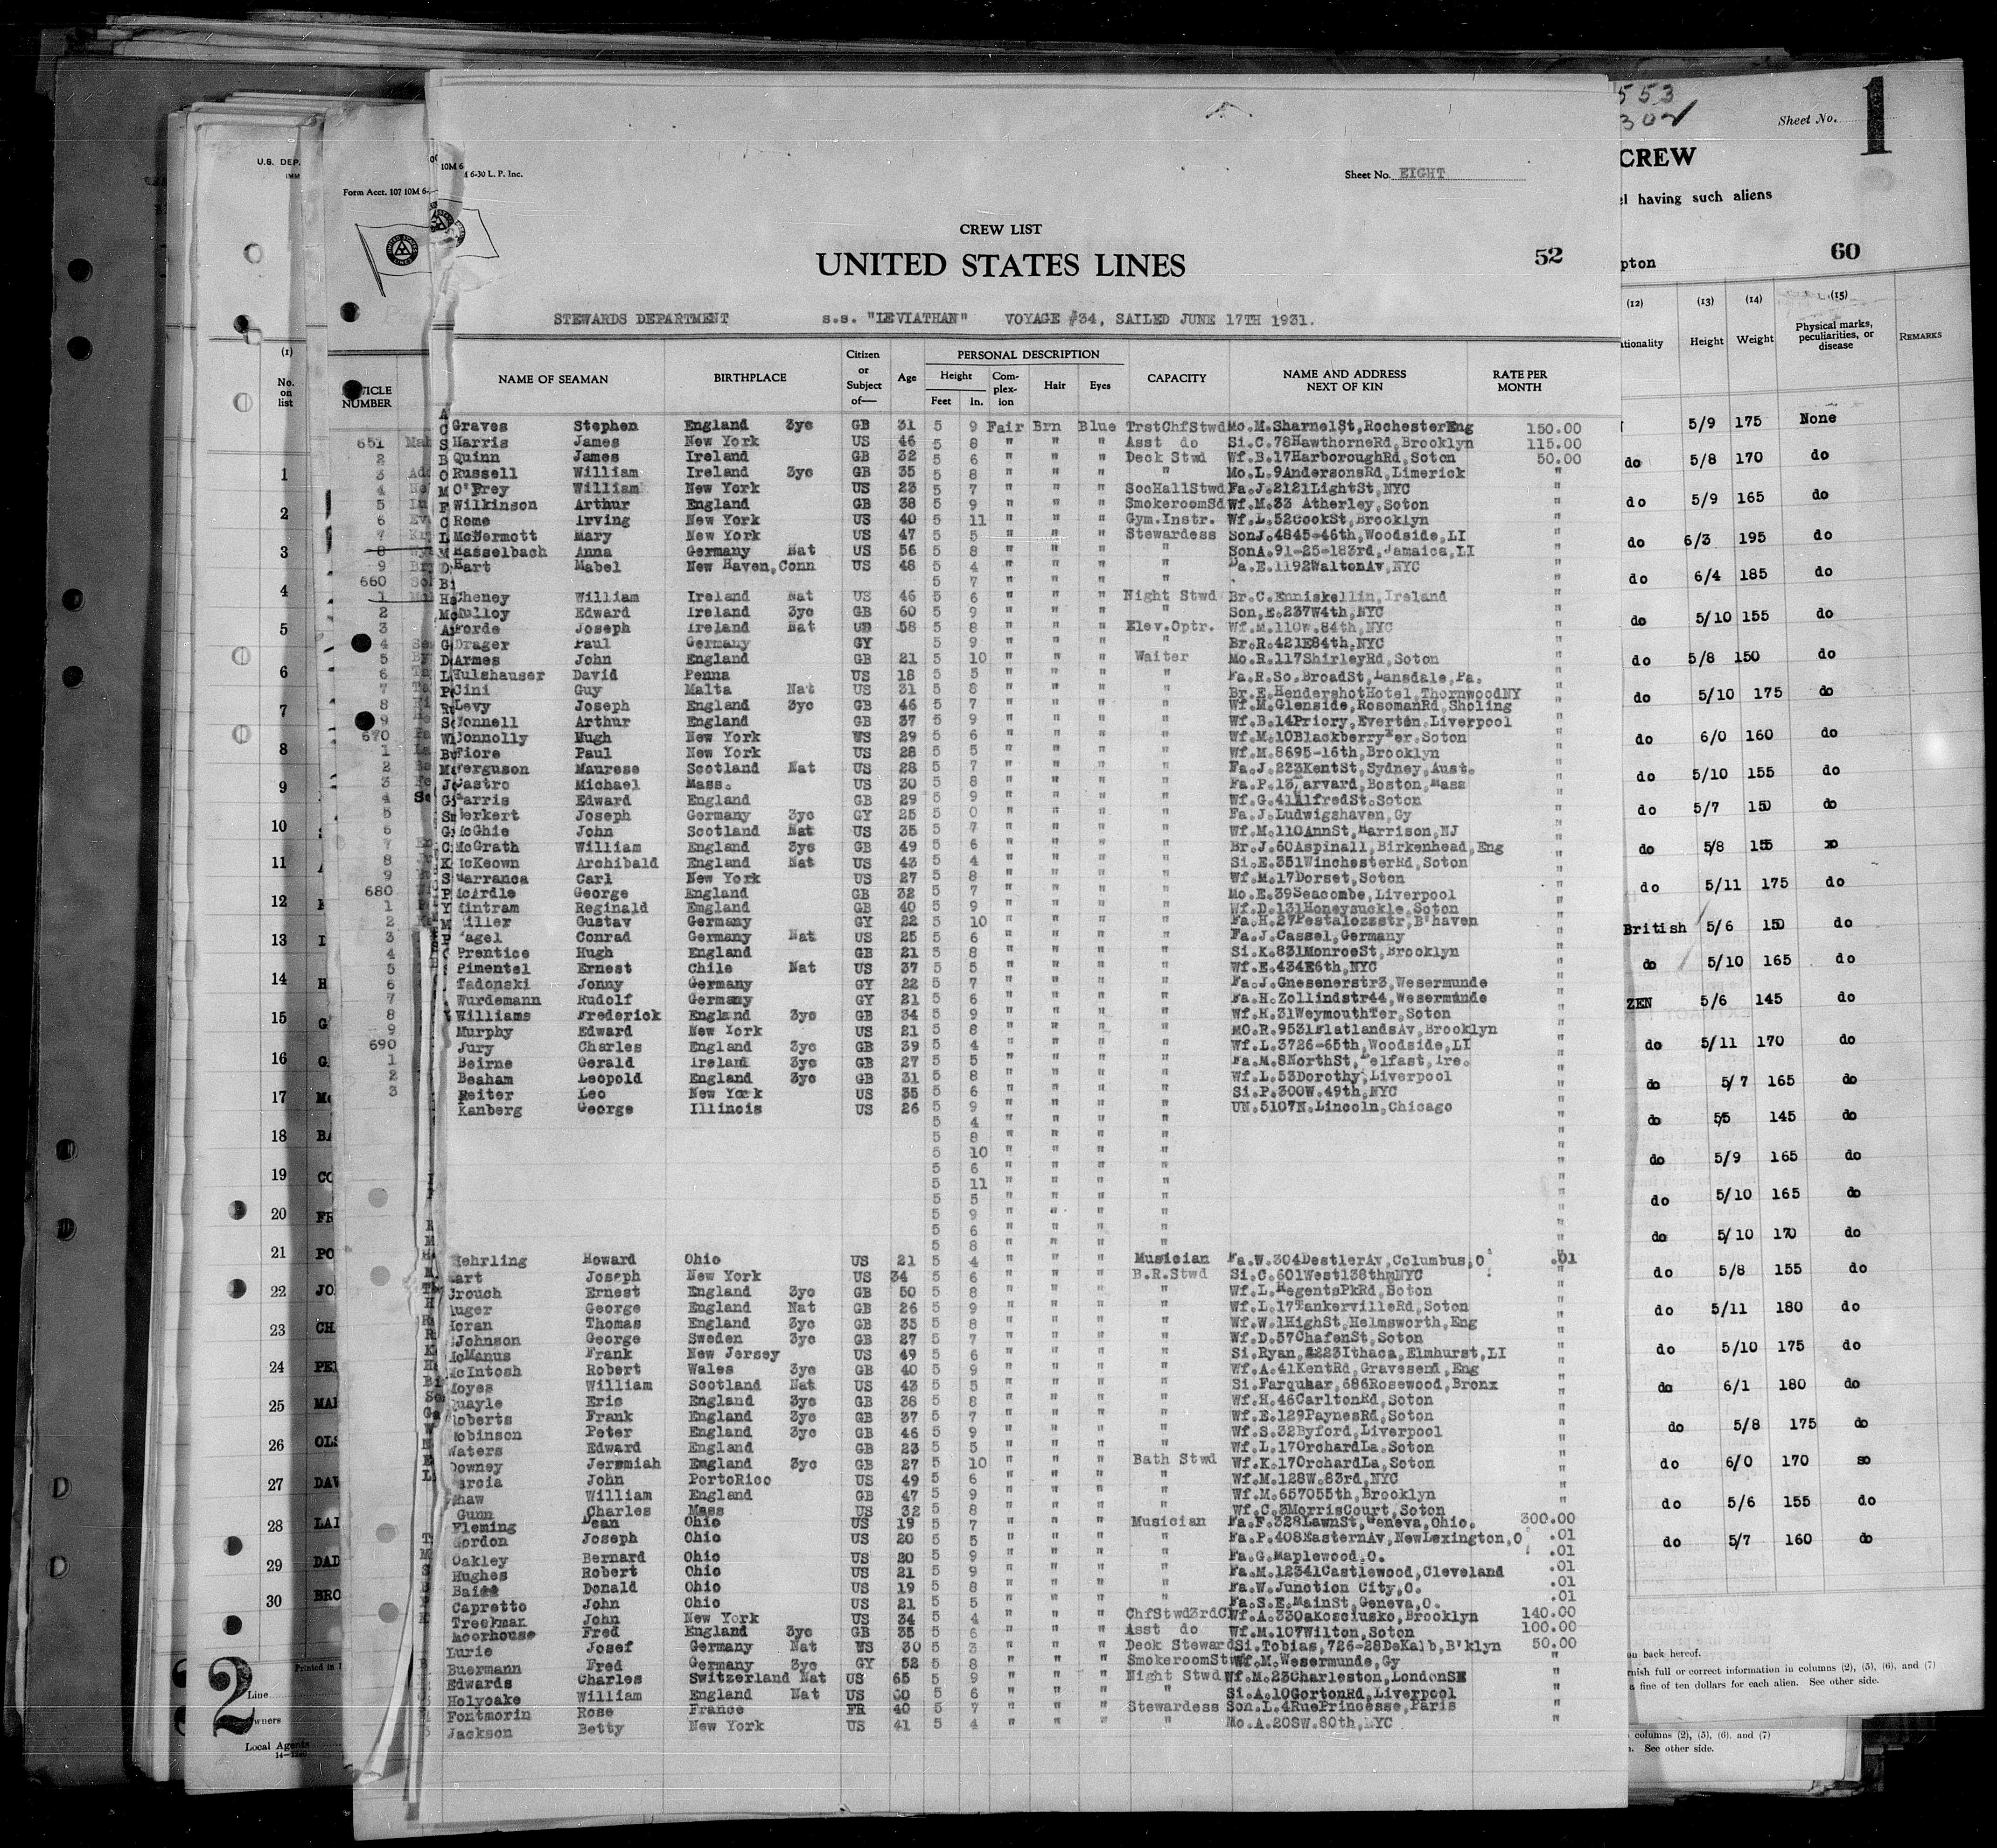 U.S. DEP
IMM
Form Acct. 107 10M 6-
10M 6
6-30 L. P. Inc.
Sheet No. EIGHT
CREW LIST
UNITED STATES LINES
52
STEWARDS DEPARTMENT s.s. "LEVIATHAN" VOYAGE #34, SAILED JUNE 17TH 1931.
NUMBER NAME OF SEAMAN BIRTHPLACE Citizen or Subject of— Age PERSONAL DESCRIPTION Height Feet In. Com-plex-ion Hair Eyes CAPACITY NAME AND ADDRESS NEXT OF KIN RATE PER MONTH
Graves Stephen England 3yc GB 31 5 9 Fair Brn Blue TrstChfStwd Mo.M.SharnelSt,RochesterEng 150.00
651 Harris James New York US 46 5 8 " " " Asst do Si.C.78HawthorneRd,Brooklyn 115.00
2 Quinn James Ireland GB 32 5 6 " " " Deck Stwd Wf.B.17HarboroughRd,Soton 50.00
3 Russell William Ireland 3yc GB 35 5 8 " " " " Mo.L.9AndersonsRd,Limerick "
4 O'Frey William New York US 23 5 7 " " " SocHallStwd Fa.J.2121LightSt,NYC "
5 Wilkinson Arthur England GB 38 5 9 " " " SmokeroomSd Wf.M.33 Atherley,Soton "
6 Rome Irving New York US 40 5 11 " " " Gym.Instr. Wf.L.52CookSt,Brooklyn "
7 McDermott Mary New York US 47 5 5 " " " Stewardess SonJ.4845-46th,Woodside,LI "
8 Hasselbach Anna Germany Nat US 56 5 8 " " " " SonA.91-25-183rd,Jamaica,LI "
9 Hart Mabel New Haven,Conn US 48 5 4 " " " " Da.E.1192WaltonAv,NYC "
660 5 7 " " " "
1 Cheney William Ireland Nat US 46 5 6 " " " Night Stwd Br.C.Enniskellin,Ireland "
2 Mulloy Edward Ireland 3yc GB 60 5 9 " " " " Son,E.237W4th,NYC "
3 Forde Joseph Ireland Nat 58 5 8 " " " Elev.Optr. Wf.M.110W.84th,NYC "
4 Drager Paul Germany GY 5 9 " " " " Br.R.421E84th,NYC "
5 Armes John England GB 21 5 10 " " " Waiter Mo.R.117ShirleyRd,Soton "
6 Hulshauser David Penna US 18 5 5 " " " " Fa.R.So.BroadSt,Lansdale,Pa. "
7 Cini Guy Malta Nat US 31 5 8 " " " " Br.E.HendershotHotel,ThornwoodNY "
8 Levy Joseph England 3yc GB 46 5 7 " " " " Wf.M.Glenside,RosomanRd,Sholing "
9 Connell Arthur England GB 37 5 9 " " " " Wf.B.14Priory,Everton,Liverpool "
670 Connolly Hugh New York US 29 5 6 " " " " Wf.M.10BlackberryTer.Soton "
1 Fiore Paul New York US 28 5 5 " " " " Wf.M.8695-16th,Brooklyn "
2 Ferguson Maurese Scotland Nat US 28 5 7 " " " " Fa.J.223KentSt,Sydney,Aust. "
3 Castro Michael Mass. US 30 5 8 " " " " Fa.P.13Harvard,Boston,Mass "
4 Harris Edward England GB 29 5 9 " " " " Wf.G.41AlfredSt.Soton "
5 Herkert Joseph Germany 3yc GY 25 5 0 " " " " Fa.J.Ludwigshaven,Gy "
6 McGhie John Scotland Nat US 35 5 7 " " " " Wf.M.110AnnSt,Harrison,NJ "
7 McGrath William England 3yc GB 49 5 6 " " " " Br.J.60Aspinall,Birkenhead,Eng "
8 McKeown Archibald England Nat US 43 5 4 " " " " Si.E.351WinchesterRd,Soton "
9 Marranca Carl New York US 27 5 8 " " " " Wf.M.17Dorset,Soton "
680 McArdle George England GB 32 5 7 " " " " Mo.E.39Seacombe,Liverpool "
1 Mintram Reginald England GB 40 5 9 " " " " Wf.D.131Honeysuckle,Soton "
2 Miller Gustav Germany GY 22 5 10 " " " " Fa.H.27Pestalozzstr,B'haven "
3 Nagel Conrad Germany Nat US 25 5 6 " " " " Fa.J.Cassel,Germany "
4 Prentice Hugh England GB 21 5 8 " " " " Si.K.831MonroeSt,Brooklyn "
5 Pimentel Ernest Chile Nat US 37 5 5 " " " " Wf.E.434E6th,NYC "
6 Jonny Germany GY 22 5 7 " " " " Fa.J.Gnesenerstr3,Wesermunde "
7 Wurdemann Rudolf Germany GY 21 5 6 " " " " Fa.H.Zollindstr44,Wesermunde "
8 Williams Frederick England 3yc GB 34 5 9 " " " " Wf.H.31WeymouthTer,Soton "
9 Murphy Edward New York US 21 5 8 " " " " MO.R.9531FlatlandsAv,Brooklyn "
690 Jury Charles England 3yc GB 39 5 4 " " " " Wf.L.3726-65th,Woodside,LI "
1 Beirne Gerald Ireland 3yc GB 27 5 5 " " " " Fa.M.8NorthSt,Belfast,Ire. "
2 Beaham Leopold England 3yc GB 31 5 8 " " " " Wf.L.53Dorothy,Liverpool "
3 Reiter Leo New York US 35 5 6 " " " " Si.P.300W.49th,NYC "
Kanberg George Illinois US 26 5 9 " " " " UN.5107N.Lincoln,Chicago "
5 4 " " " " "
5 8 " " " " "
5 10 " " " " "
5 6 " " " " "
5 11 " " " " "
5 5 " " " " "
5 9 " " " " "
5 6 " " " " "
5 8 " " " " "
Howard Ohio US 21 5 4 " " " Musician Fa.W.304DestlerAv,Columbus,O .01
Hart Joseph New York US 34 5 6 " " " B.R.Stwd Si.C.601West138thmNYC
Crouch Ernest England 3yc GB 50 5 8 " " " " Wf.L.RegentsPkRd,Soton "
George England Nat GB 26 5 9 " " " " Wf.L.17TankervilleRd,Soton "
Horan Thomas England 3yc GB 35 5 8 " " " " Wf.W.1HighSt,Helmsworth,Eng "
Johnson George Sweden 3yc GB 27 5 7 " " " " Wf.D.57ChafenSt,Soton "
McManus Frank New Jersey US 49 5 6 " " " " Si.Ryan,4223Ithaca,Elmhurst,LI "
McIntosh Robert Wales 3yc GB 40 5 9 " " " " Wf.A.41KentRd,Gravesend,Eng "
Moyes William Scotland Nat US 43 5 5 " " " " Si.Farquhar,686Rosewood,Bronx "
Quayle Eric England 3yc GB 38 5 8 " " " " Wf.H.46CarltonRd,Soton "
Roberts Frank England 3yc GB 37 5 7 " " " " Wf.E.129PaynesRd,Soton "
Robinson Peter England 3yc GB 46 5 9 " " " " Wf.S.32Byford,Liverpool "
Waters Edward England GB 23 5 5 " " " " Wf.L.17OrchardLa.Soton "
Downey Jeremiah England 3yc GB 27 5 10 " " " Bath Stwd Wf.K.17OrchardLa,Soton "
Garcia John PortoRico US 49 5 6 " " " " Wf.M.128W.83rd,NYC "
Shaw William England GB 47 5 9 " " " " Wf.M.657055th,Brooklyn "
Gunn Charles Mass US 32 5 8 " " " " Wf.C.3MorrisCourt,Soton "
Fleming Dean Ohio US 19 5 7 " " " Musician Fa.F.328LawnSt,Geneva,Ohio. 300.00
Gordon Joseph Ohio US 20 5 5 " " " " Fa.P.408EasternAv,NewLexington,O .01
Oakley Bernard Ohio US 20 5 9 " " " " Fa.G.Maplewood,O. .01
Hughes Robert Ohio US 21 5 9 " " " " Fa.M.12341Castlewood,Cleveland .01
Donald Ohio US 19 5 8 " " " " Fa.W.Junction City,O. .01
Capretto John Ohio US 21 5 5 " " " " Fa.S.E.MainSt,Geneva,O. .01
Treekman John New York US 34 5 4 " " " ChfStwd3rdCl Wf.A.330aKosciusko,Brooklyn 140.00
Moorhouse Fred England 3yc GB 35 5 6 " " " Asst do Wf.M.107Wilton,Soton 100.00
Lurie Josef Germany Nat US 30 5 3 " " " Deck Steward Si.Tobias,726-28DeKalb,B'klyn 50.00
Buermann Fred Germany 3yc GY 52 5 8 " " " SmokeroomStwd Wf.M.Wesermunde,Gy "
Edwards Charles Switzerland Nat US 65 5 9 " " " Night Stwd Wf.M.23Charleston,LondonSE "
Holyoake William England Nat US 60 5 6 " " " " Si.A.10GortonRd,Liverpool "
Fontmorin Rose France FR 40 5 7 " " " Stewardess Son.L.4RuePrincesse,Paris "
Jackson Betty New York US 41 5 4 " " " " Mo.A.20SW.80th,NYC "
(1)
No. on list
1
2
3
4
5
6
7
8
9
10
11
12
13
14
15
16
17
18
19
20
21
22
23
24
25
26
27
28
29
30
2
Line
Owners
Local Agents
Printed in
553
302
Sheet No. 1
CREW
having such aliens
pton 60
(12) (13) (14) (15)
Height Weight Physical marks, peculiarities, or disease REMARKS
5/9 175 None
do 5/8 170 do
do 5/9 165 do
do 6/3 195 do
do 6/4 185 do
do 5/10 155 do
do 5/8 150 do
do 5/10 175 do
do 6/0 160 do
do 5/10 155 do
do 5/7 150 do
do 5/8 155
do 5/11 175 do
British 5/6 150 do
do 5/10 165 do
ZEN 5/6 145 do
do 5/11 170 do
do 5/7 165 do
do 5/5 145 do
do 5/9 165 do
do 5/10 165 do
do 5/10 170 do
do 5/8 155 do
do 5/11 180 do
do 5/10 175 do
do 6/1 180 do
do 5/8 175 do
do 6/0 170
do 5/6 155 do
do 5/7 160 do
on back hereof.
rnish full or correct information in columns (2), (5), (6), and (7)
a fine of ten dollars for each alien. See other side.
columns (2), (5), (6), and (7)
See other side.